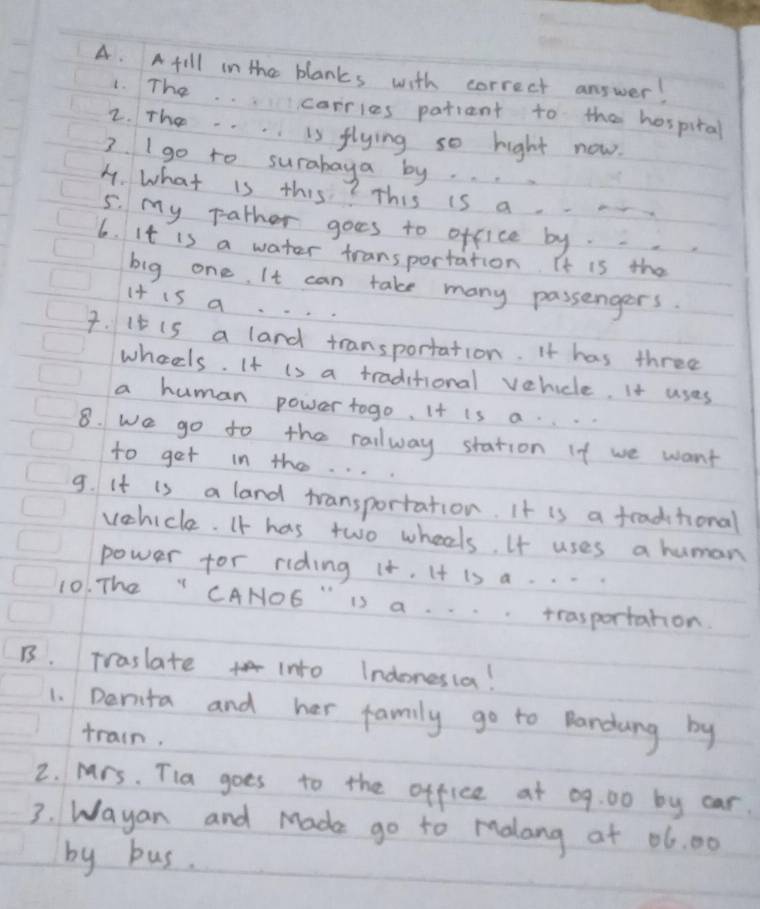 A. A fill in the blanks with correct answer!
1. The .... carries patient to the hospital
2. The ..... is flying so hight now.
3. I go to surabaya by ....
4. What is this? This is a .....
5. My Father goes to office by ....
6. It is a water transportation. It is the
big one. It can take many passengers.
it is a ....
7. It is a land transportation. It has three
wheels. It is a traditional vehicle. It uses
a human power togo. It is a ....
8. We go to the railway station if we want
to get in the ....
9. It is a land transportation. It is a traditional
vehicle. It has two wheels. It uses a human
power for riding it. It is a ....
10. The "CANOE" is a .... trasportation.
B. Traslate into Indonesia!
1. Denita and her family go to Bandung by
train.
2. Mrs. Tia goes to the office at 09.00 by car.
3. Wayan and Made go to Malang at 06.00
by bus.